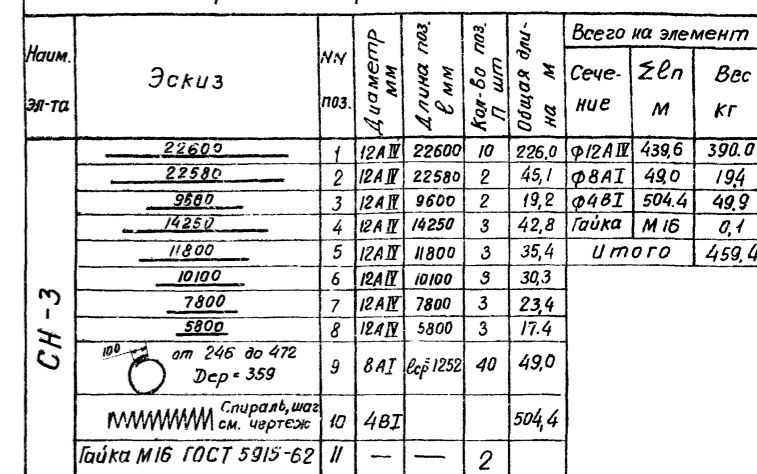 Наим. эл-та
Эскиз
NN поз.
Диаметр мм
Длина поз. ℓ мм
Кол-во поз. П шт
Общая длина м
Всего на элемент
Сечение
Σℓп М
Вес кг
СН-3
22600 1 12АIV 22600 10 226,0 ф12АIV 439,6 390.0
22580 2 12АIV 22580 2 45,1 ф8АI 49,0 19,4
9600 3 12АIV 9600 2 19,2 ф4ВI 504.4 49,9
14250 4 12АIV 14250 3 42,8 Гайка М16 0,1
11800 5 12АIV 11800 3 35,4 Итого 459,4
10100 6 12АIV 10100 3 30,3
7800 7 12АIV 7800 3 23,4
5800 8 12АIV 5800 3 17.4
100 от 246 до 472
Dср = 359 9 8АI ℓср=1252 40 49,0
Спираль, шаг
см. чертеж 10 4ВI 504,4
Гайка М16 ГОСТ 5915-62 11 — — 2